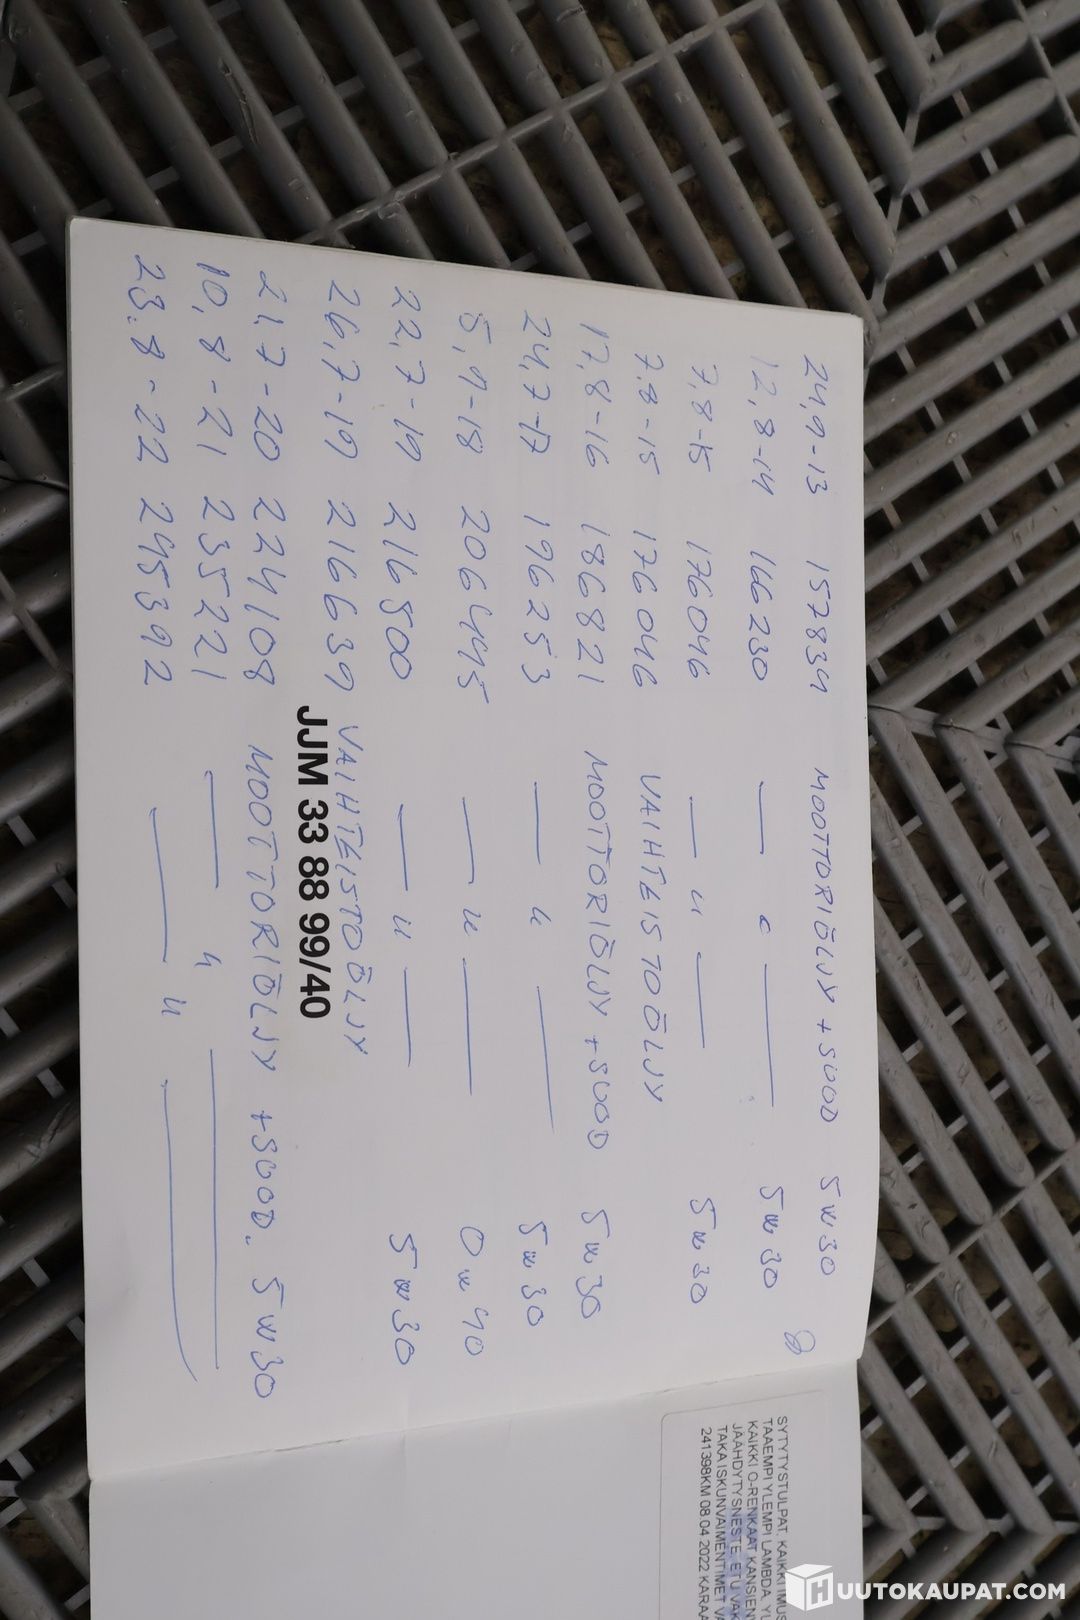 24,9-13 157834 MOOTTORIÖLJY +SUOD 5w30
12,8-14 166230 — " — 5w30
7,8-15 176046 — " — 5w30
7,8-15 176046 VAIHTEISTOÖLJY
17,8-16 186821 MOOTTORIÖLJY +SUOD 5w30
24,7-17 196253 — " — 5w30
5,9-18 206445 — " — 0w40
22,7-19 216500 — " — 5w30
26,7-19 216639 VAIHTEISTOÖLJY
JJM 33 88 99/40
21,7-20 224108 MOOTTORIÖLJY +SUOD. 5w30
10,8-21 235221 — " —
23.8-22 245392 — " —
SYTYTYSTULPAT. KAIKKI IMUS
TAAEMPI YLEMPI LAMBDA. YL
KAIKKI O-RENKAAT KANSIEN
JÄÄHDYTYSNESTE. ETU VAK
TAKA ISKUNVAIMENTIMET VA
241398KM 08 04 2022 KARAA
HUUTOKAUPAT.COM